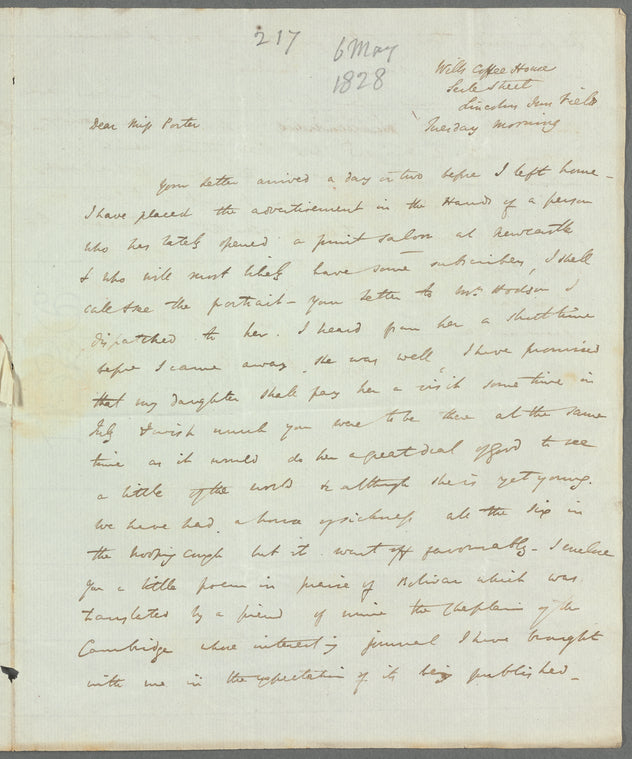 217
6 May
1828
Wills Coffee House
Serle Street
Lincolns Inn Fields
Tuesday Morning
Dear Miss Porter
Your letter arrived a day or two before I left home -
I have placed the advertisement in the Hands of a person
who has lately opened a print saloon at Newcastle
& who will most likely have some subscribers, I shall
call & see the portrait - your letter to Mrs Hodson I
dispatched to her. I heard from her a short time
before I came away she was well, I have promised
that my daughter shall pay her a visit some time in
July & wish much you were to be there at the same
time as it would do her a great deal of good to see
a little of the world & although she is yet young.
We have had a house of sickness all the six in
the hooping cough but it went off favourably - I enclose
you a little poem in praise of Bolivar which was
translated by a friend of mine the Chaplain of the
Cambridge whose interesting journal I have brought
with me in the expectation of its being published -